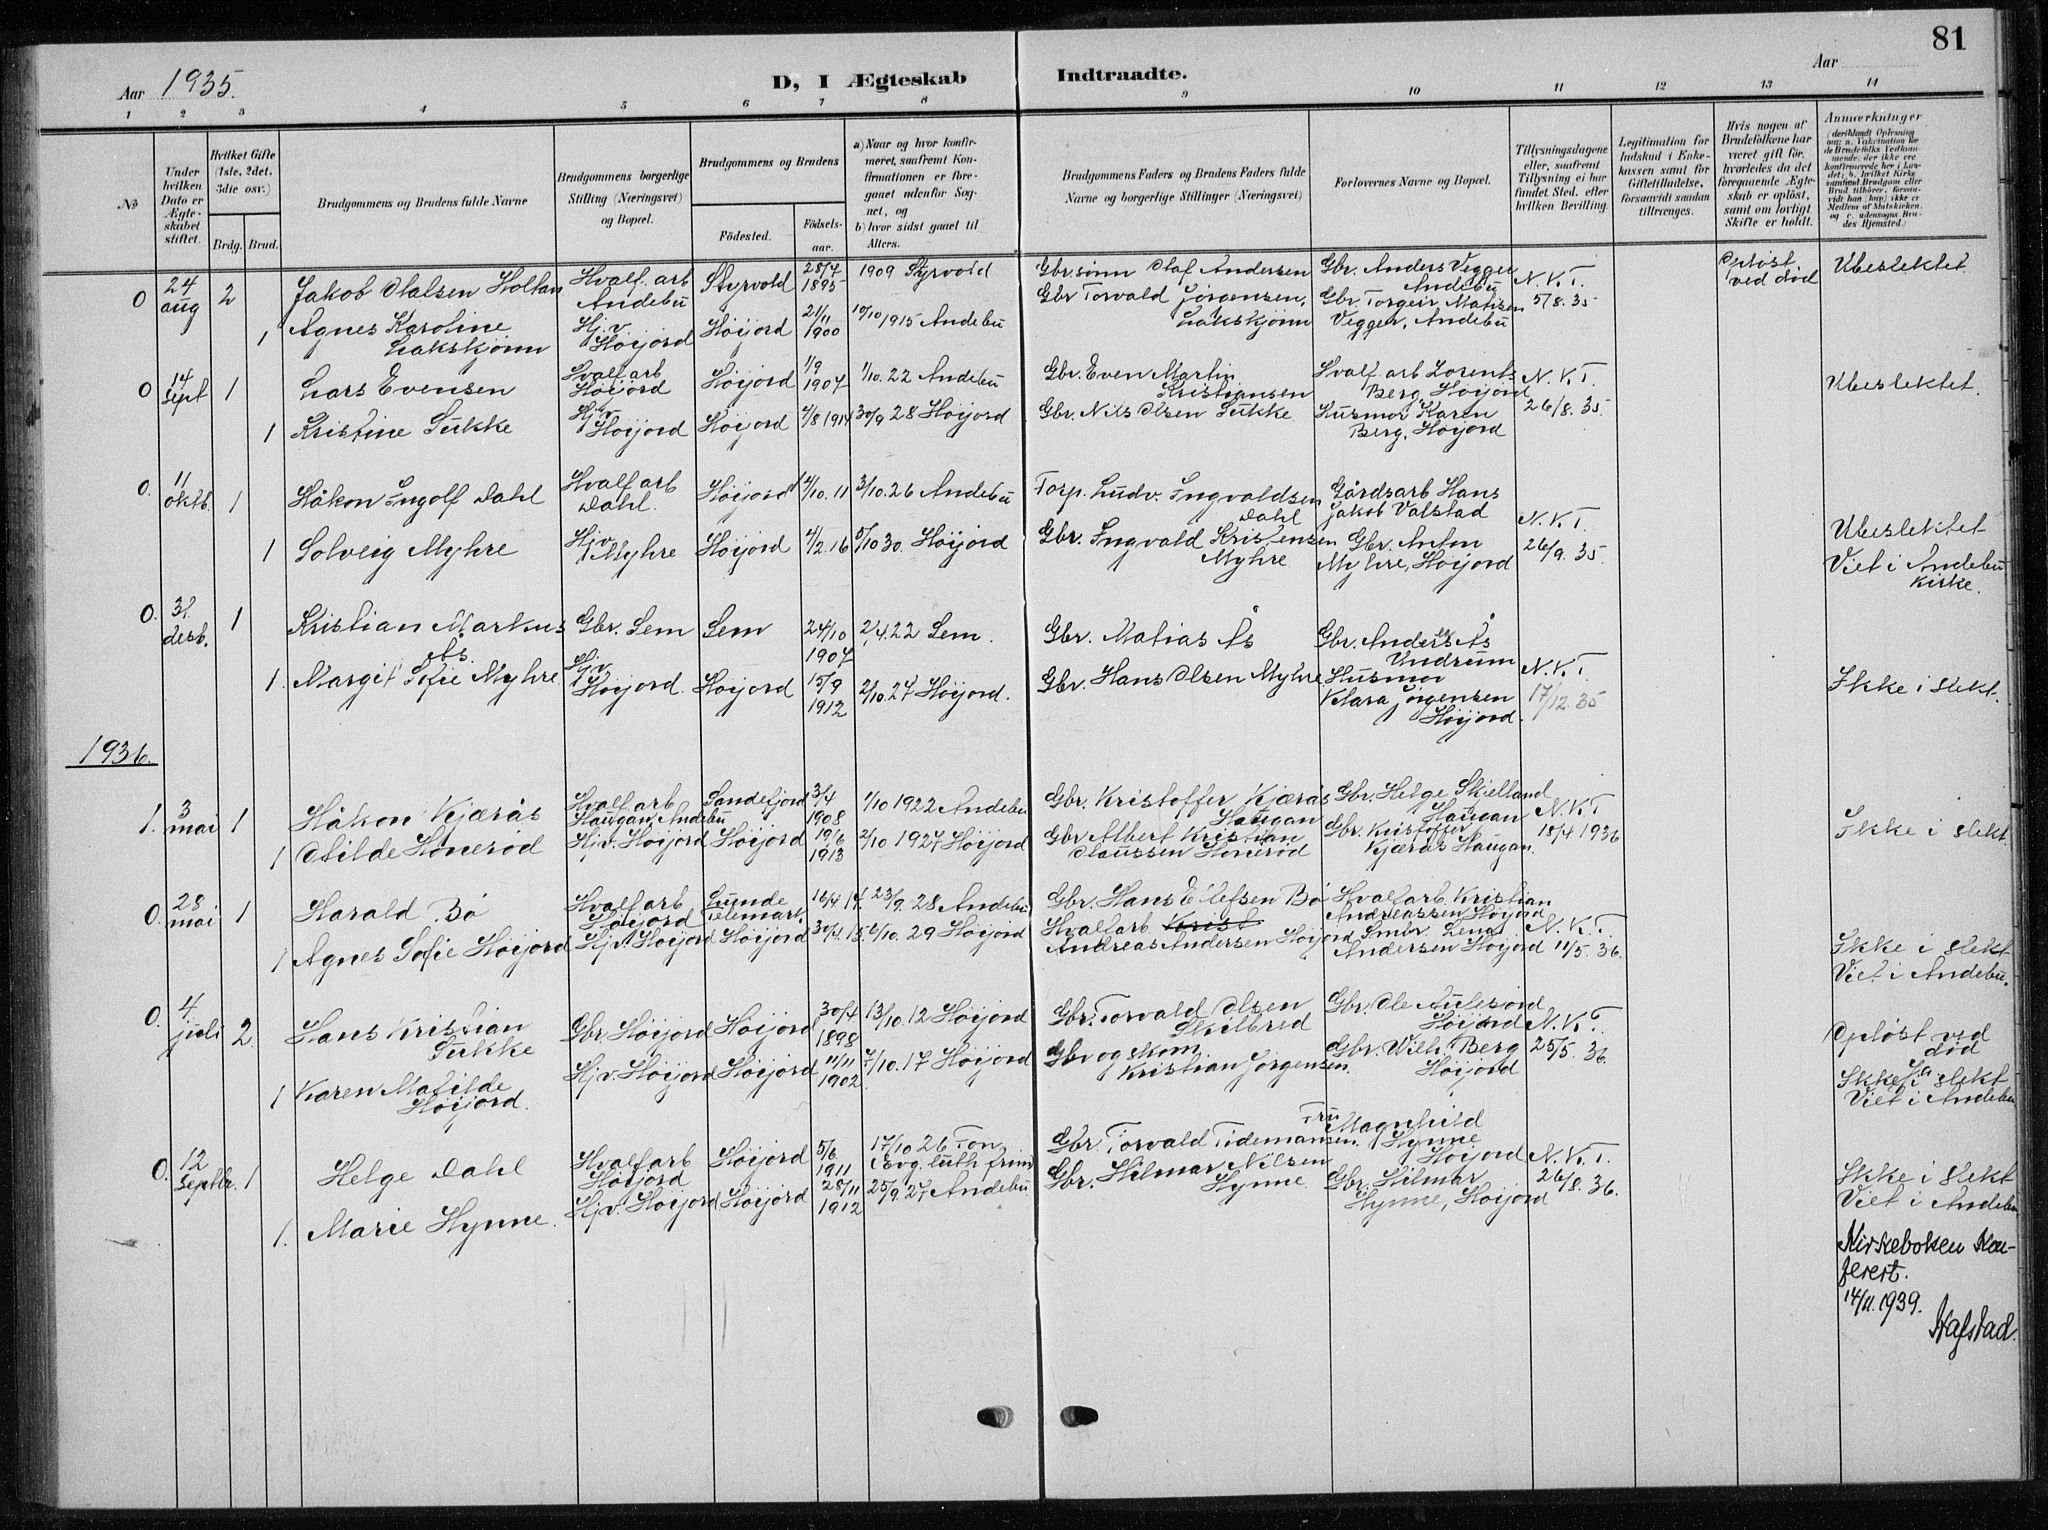 81
Aar 1935.
D, I Ægteskab Indtraadte.
Aar
1 2 3 4 5 6 7 8 9 10 11 12 13 14
No
Under hvilken Dato er Ægteskabet stiftet.
Hvilket Gifte (1ste, 2det, 3die osv.)
Brdg. Brud.
Brudgommens og Brudens fulde Navne
Brudgommens borgerlige Stilling (Næringsvei) og Bopæl.
Brudgommens og Brudens
Fødested. Fødselsaar.
a) Naar og hvor konfirmeret, saafremt Konfirmationen er foregaaet udenfor Sognet, og
b) hvor sidst gaaet til Alters.
Brudgommens Faders og Brudens Faders fulde Navne og borgerlige Stillinger (Næringsvei)
Forlovernes Navne og Bopæl.
Tillysningsdagene eller, saafremt Tillysning ei har fundet Sted, efter hvilken Bevilling.
Legitimation for Indskud i Enkekassen samt for Giftetilladelse, forsaavidt saadan tiltrænges.
Hvis nogen af Brudefolkene har været gift før, hvorledes da det foregaaende Ægteskab er opløst, samt om lovligt Skifte er holdt.
Anmærkninger
0 24 aug 2 Jakob Olalsen Holtan Hvalf. arb Andebu Styrvold 28/7 1895 1909 Styrvold Gbr. sønn Olaf Andersen Gbr. Anders Vegger Andebu N.K.T. 5/8. 35 Opløst ved død Ubeslektet
1 Agnes Karoline Lakskjønn Hj.v Høijord Høijord 21/11 1900 10/10 1915 Andebu Gbr Torvald Jörgensen, Lakskjønn Gbr. Torgeir Matisen Vegger, Andebu
0 14 sept 1 Lars Evensen Hvalf arb Høijord Høijord 1/9 1907 1/10. 22 Andebu Gbr. Even Martin Kristiansen Hvalf arb Lorents Berg, Høijord N.K.T. 26/8. 35 Ubeslektet
1 Kristine Sukke Hjv Høijord Høijord 7/8 1914 30/9 28 Høijord Gbr. Nils Olsen Sukke Husmor Karen Berg, Høijord
0. 11 oktb. 1 Håkon Ingolf Dahl Hvalf arb Dahl. Høijord 4/10. 11 3/10. 26 Andebu Torp. Ludv. Ingvaldsen Dahl Gårdsarb Hans Jakob Valstad N.K.T. 26/9. 35
1 Solveig Myhre Hjv Myhre Høijord 4/2. 16 5/10 30. Høijord Gbr. Ingvald Kristensen Myhre Gbr. Anton Myhre, Høijord Ubeslektet Viet i Andebu kirke.
0. 31. desb. 1 Kristian Markus Ås Gbr. Sem Sem 24/10 1907 2/4. 22 Sem. Gbr. Matias Ås Gbr. Anders Ås Undrum N.K.T. 17/12. 35
1. Margit Sofie Myhre Hjv Høijord. Høijord 15/9 1912 2/10. 27 Høijord. Gbr. Hans Olsen Myhre Husmor Klara Jörgensen Høijord. Ikke i slekt.
1936.
1. 3 mai 1 Håkon Kjærås Hvalf arb Haugan, Andebu Sandefjord 3/4 1908 1/10 1922 Andebu Gbr. Kristoffer Kjærås Haugan Gbr. Helge Skjelland Haugan N.K.T 18/4 1936 Ikke i slekt.
1 Otilde Hönerød Hjv. Høijord Høijord 19/6 1913 2/10 1927 Høijord Gbr Albert Kristian Claussen Hönerød Gbr. Kristoffer Kjærås Haugan.
0. 28 mai 1 Harald Bö Hvalf arb Høijord Lunde Telemark. 16/4 14. 23/9. 28 Andebu Gbr. Hans Elefsen Bø Hvalf arb. Kristian Andreassen Høijord N.K.T. 11/5. 36.
1 Agnes Sofie Høijord Hjv. Høijord Høijord 30/4 15. 2/10. 29 Høijord Hvalf arb Krist Andreas Andersen Høijord Smbr. Lena Andersen Høijord Ikke i slekt Viet i Andebu.
0. 4 juli 2. Hans Kristian Sukke Gbr. Høijord Høijord 30/7 1898 13/10. 12 Høijord Gbr. Torvald Olsen Skilbred Gbr. Ole Aulesjord Høijord N.K.T. 25/5. 36. Opløst ved død
1 Karen Matilde Høijord. Hjv. Høijord Høijord 11/11 1902. 7/10. 17 Høijord Gbr og skom. Kristian Jørgensen. Gbr. Wilh. Berg Høijord Ikke i slekt Viet i Andebu
0. 12 septbr. 1 Helge Dahl Hvalf arb Høijord Høijord 5/6. 1911 17/10 26 Ton (Evg. luth. frim Gbr. Torvald Tidemansen. Fru Magnhild Hynne Høijord N.K.T. 26/8. 36.
1. Marie Hynne. Hjv. Høijord Høijord 28/11 1912 25/9. 27 Andebu Gbr. Hilmar Nilsen Hynne Gbr. Hilmar Hynne, Høijord Ikke i slekt Viet i Andebu
Kirkeboken konferert.
14/11. 1939.
Hafstad.